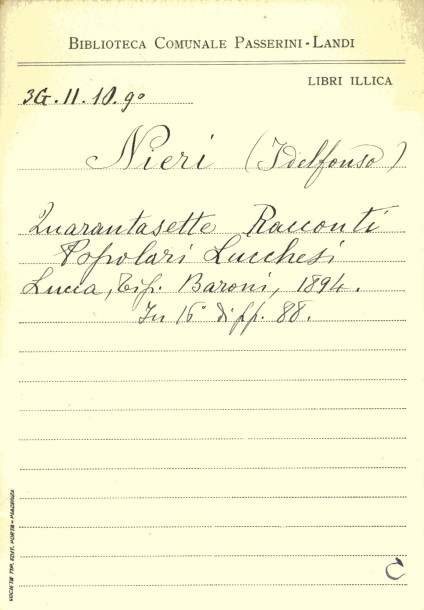 BIBLIOTECA COMUNALE PASSERINI-LANDI
LIBRI ILLICA
3G.11.10.9º
Nieri (Idelfonso)
Quarantasette Racconti
Popolari Lucchesi
Lucca, Tip. Baroni, 1894.
In 16° di pp. 88.
SOCIETÀ TIP. EDIT. PORTA - PIACENZA
C